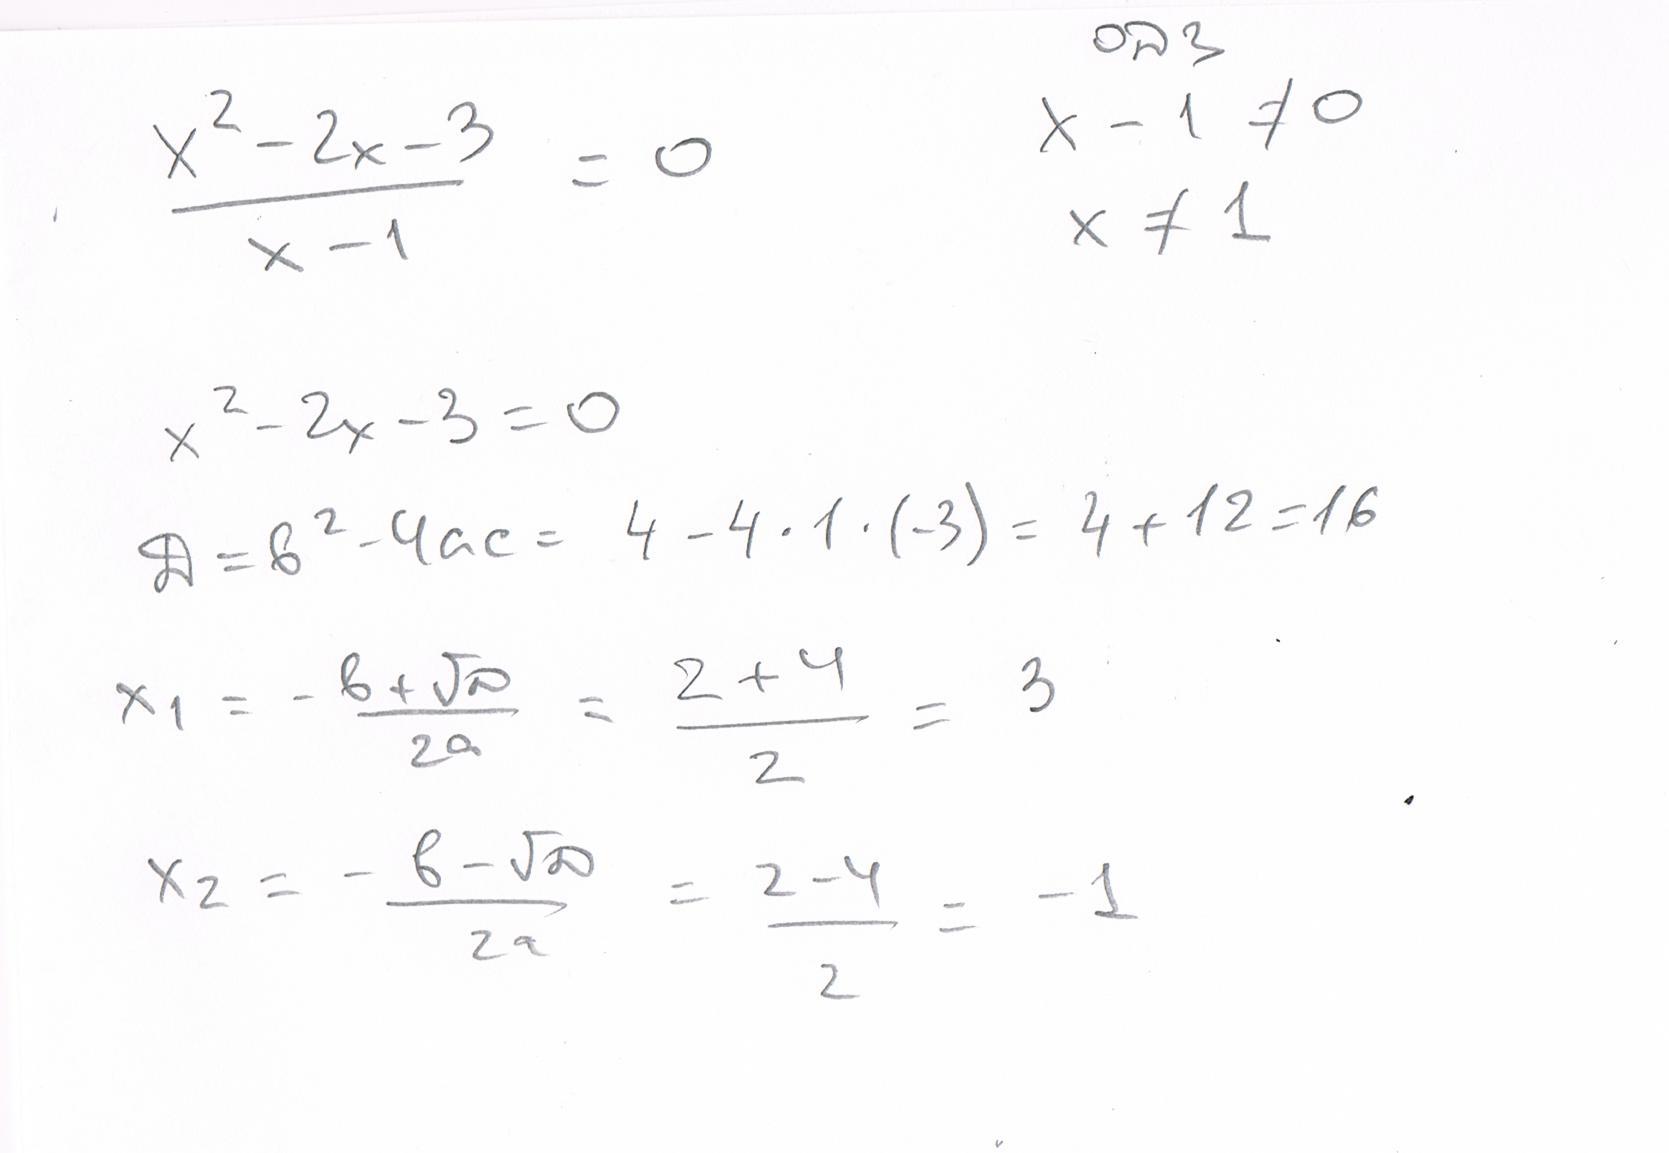 (x² - 2x - 3)/(x - 1) = 0
ОДЗ
x - 1 ≠ 0
x ≠ 1
x² - 2x - 3 = 0
Д = в² - 4ac = 4 - 4 · 1 · (-3) = 4 + 12 = 16
x₁ = - (в + √Д)/(2a) = (2 + 4)/2 = 3
x₂ = - (в - √Д)/(2a) = (2 - 4)/2 = -1